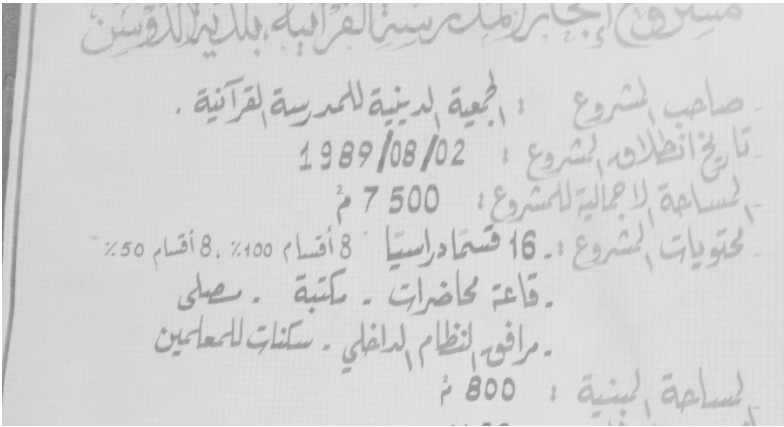 مشروع إنجاز المدرسة القرآنية بلدية الدوسن
- صاحب المشروع : الجمعية الدينية للمدرسة القرآنية .
- تاريخ انطلاق المشروع : 1989/08/02
- المساحة الاجمالية للمشروع : 7500 م²
- محتويات المشروع : - 16 قسمًا دراسيًا 8 أقسام 100% . 8 أقسام 50%
- قاعة محاضرات - مكتبة - مصلى
- مرافق النظام الداخلي - سكنات للمعلمين
المساحة المبنية : 800 م²